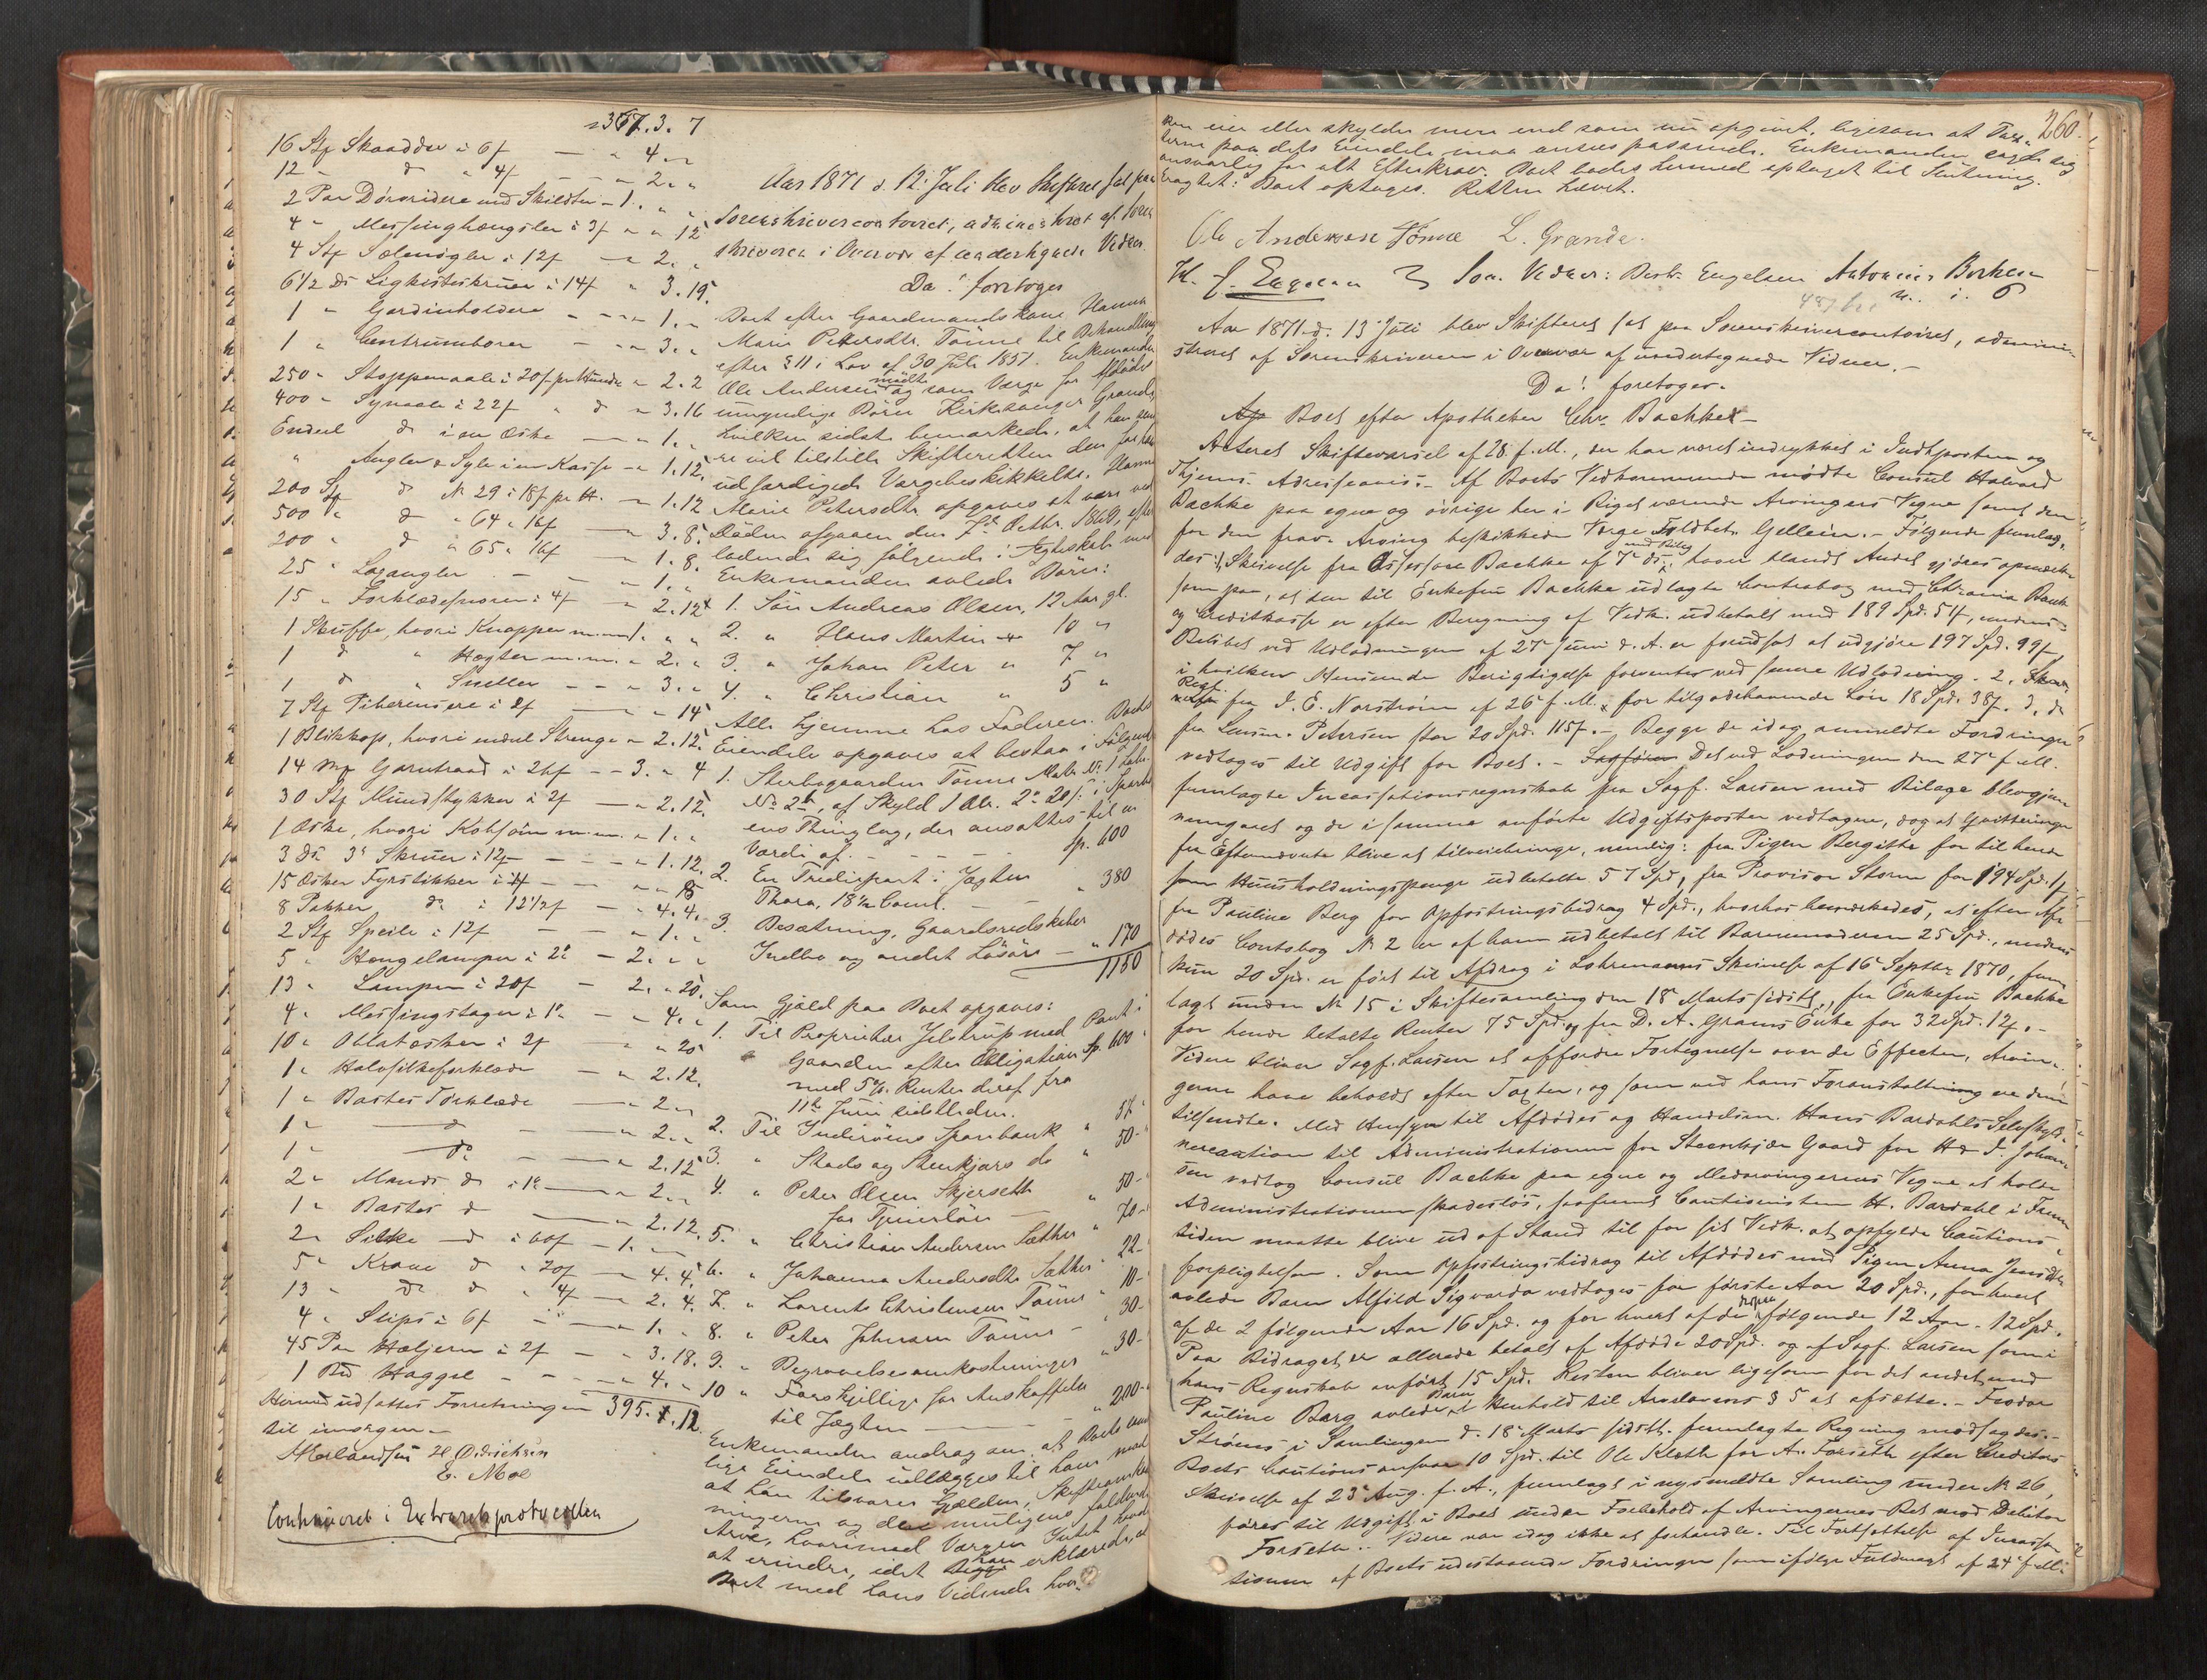 367. 3. 7
16 Stk Skaadder à 6ſ — " 4. "
12 " do " 4ſ — " 2. "
2 Par Dørvridere med Skildter — 1. " "
4 " Messinghængsler à 3ſ " " 12
4 Stk Sælenøgler à 12ſ — " 2. "
6 1/2 Ds Ligkisteskruer à 14ſ " 3. 19.
1 " Gardinholdere — " 1. "
1 " Centrumborer — " 3. "
250 " Stoppenaale à 20ſ pr Hundre " 2. 2
400 " Synaale à 22ſ " do " 3. 16
Endeel do i en Æske — " 1. "
" Angler & Syle i en Kasse — " 1. 12.
200 Stk do N 29 à 18ſ pr H. — " 1. 12
500 " do " 64 à 16ſ — " 3. 8.
200 " do " 65 à 16ſ — " 1. 8.
25 " Laxangler — " 1. "
15 " Forklædesnorer à 4ſ — " 2. 12
1 Skuffe, hvori Knapper m.m. 1. " "
1 do " Hægter m.m. " 2. "
1 do " Sneller — " 3. "
7 Stk Piberensere à 2ſ — " " 14
1 Blikkop, hvori endeel Strenge " 2. 12.
14 Mk Garntraad à 26ſ — 3. " 4
30 Stk Mundstykker à 2ſ — " 2. 12.
1 Æske, hvori Kobsøm m.m. " 1. "
3 Ds. 3" Skruer à 12ſ — " 1. 12.
15 Æsker Fyrstikker à 1ſ — " " 15
8 Pakker do à 12 1/2ſ — " 4. 4.
2 Stk Speile à 12ſ — " 1. "
5 " Hængelamper à 2 — 2. " "
13 " Lamper à 20ſ — 2. " 20.
4 " Messingstager à 1 — " 4. "
10 " Oblatæsker à 2ſ " " 20
1 " Halvsilkeforklæde — " 2. 12.
1 " Bastes Tørklæde — " 2. "
1 " do — " 2. "
1 " do — " 2. 12
2 " Mands do à 1 — " 2. "
1 " Bastes do — " 2. 12.
2 " Silke do à 60ſ — 1. " "
5 " Krave do " 20ſ — " 4. 4.
13 " do do " 4ſ — " 2. 4.
4 " Slips à 6ſ — " 1. "
45 Par Hæljern à 2ſ — " 3. 18.
1 Bd Haggel — " 4. "
Hermed udsattes Forretningen 395. 1. 12.
til imorgen. —
E. Moe
Continueret i Extraretsprotocollen
Aar 1871 d. 12. Juli blev Skifteret sat paa
Sorenskrivercontoiret, administreret af Soren
skriveren i Overvær af undertegnede Vidner.
Da! foretoges
Boet efter Gaardmandskone Hanna
Marie Petersdtr. Tønne til Behandling
efter § 11 i Lov af 30 Juli 1851. Enkemanden
Ole Andersen mødte og som Værge for Afdødes
umyndige Børn Kirkesanger Grande,
hvilken sidste bemærkede, at han sene
re vil tilstille Skifteretten den for ham
udfærdigede Værgebeskikkelse. Hanna
Marie Petersdtr opgaves at være ved
Døden afgaaen den 7de Octbr. 1869, efter
ladende sig følgende i Ægteskab med
Enkemanden avlede Børn:
1. Søn Andreas Olsen, 12 Aar gl.
2. " Hans Martin " 10 "
3. " Johan Peter " 7 "
4. " Christian " 5 "
Alle hjemme hos Faderen. Boets
Eiendele opgaves at bestaa i Følgende
1. Sterbogaarden Tønne Matr. No. 1 Løbe-
No. 2 b, af Skyld 1 Dlr. 2 " 20ſ. i Sparbu
ens Thinglag, der ansattes til en
Værdi af — Sp. 600
2. En Trediepart i Jagten
Thora, 18 1/2 Coml. — " 380
3. Besætning, Gaardsredskaber
Indbo og andet Løsøre — " 170
1150
Som Gjæld paa Boet opgaves:
1. Til Proprietær Jelstrup med Pant i
Gaarden efter Obligation Sp. 600
med 5 % Renter deraf fra
11te Juni sidstleden.
2. Til Inderøens Sparebank " 57
3. " Stods og Stenkjærs do " 50 -
4. " Peter Olsen Skjerseth
for Tjenerløn — " 50 -
5. " Christian Andersen Sæther " 70 -
6. " Johanna Andersdtr Sæther " 22 -
7. " Lorents Christensen Tønne " 10 -
8. " Peter Johnsen Tønne — " 30 -
9. " Begravelsesomkostninger " 30 -
10 " Forskjellige for Anskaffelse
til Jægten — " 200 -
Enkemanden androg om, at Boets sam
lige Eiendele udlægges til ham mod
at han tilsvarer Gjælden, Skifteomkost
ningerne og den muligens faldende
Arve, hvorimod Værgen Intet havde
at erindre, idet han erklærede, at
Boet med hans Vidende hver-
260.
ken eier eller skylder mere end som nu opgivet, ligesom at Tax-
terne paa dets Eiendele maa ansees passende. Enkemanden sagde sig
ansvarlig for alt Efterkrav. Boet bades hermed optaget til Slutning.
Eragtet: Boet optages. Retten hævet.
Ole Andersen Tønne L. Grande.
Som Vidner: Bert. Engelsen Antonius Berksen
Aar 1871 d. 13 Juli blev Skifteret sat paa Sorenskrivercontoiret, admini-
streret af Sorenskriveren i Overvær af undertegnede Vidner. —
Da! foretoges.
Boet efter Apotheker Chr. Bachke —
Acteret Skiftevarsel af 28 f. M., der har været indrykket i Indhposten og
Thjems Adresseavis. — Af Boets Vedkommende mødte Consul Halvard
Bachke paa egne og øvrige her i Riget værende Arvingers Vegne samt den
for den frav. Arving beskikkede Værge Foldbet. Gjellein. — Følgende fremlag-
des: 1, Skrivelse fra Assessor Bachke af 7 ds. med Bilag, hvori blandt Andet gjøres opmærk-
som paa, at den til Enkefru Bachke udlagte Contrabog med Chrania Bank
og Creditkasse er efter Beregning af Vedk. udbetalt med 189 Spd. 54, medens
Beløbet ved Udlodningen af 27 Juni d. A. er forudsat at udgjøre 197 Spd. 99ſ.
i hvilken Henseende Berigtigelse forventes ved senere Udlodning. 2,
Regn. fra J. E. Norstrøm af 26 f. M. for tilgodehavende Løn 18 Spd. 38ſ. 3, do
fra Lensm. Petersen stor 20 Spd. 115ſ. — Begge de idag anmeldte Fordringer
vedtoges til Udgift for Boet. — Det ved Lodningen den 27 f. M.
fremlagte Incassationsregnskab fra Sagf. Larsen med Bilage blev gjen-
nemgaaet og de i samme anførte Udgiftsposter vedtagne, dog at Qvitteringer
fra Eftermeldte blive at tilveiebringe, nemlig: fra Pigen Bergitte for til hende
som Huusholdningspenge udbetalte 57 Spd, fra Provisor Storm for 194 Spd. 1ſ
fra Pauline Berg for Opfostringsbidrag 4 Spd., hvorhos bemærkedes, at efter Af-
dødes Contobog N 2 er af ham udbetalt til Barnemoderen 25 Spd., medens
kun 20 Spd. er ført til Afdrag i Lohrmanns Skrivelse af 16 Septbr 1870, frem
lagt under N 15 i Skiftesamling den 18 Marts sidstl., fra Enkefru Bachke
for hende betalte Renter 75 Spd. og fra D. A. Grams Enke for 32 Spd. 12ſ. —
Videre bliver Sagf. Larsen at affordre Fortegnelse over de Effecter, Arvin-
gerne have beholdt efter Taxten, og som ved hans Foranstaltning ere dem
tilsendte. Med Hensyn til Afdødes og Handelsm. Hans Bardahls Selvskyld-
nercaution til Administrationen for Steenkjær Gaard for H & J. Johan
sen vedtog Consul Bachke paa egne og Medarvingernes Vegne at holde
Administrationen skadesløs, saafremt Cautionisten H. Bardahl i Frem
tiden maatte blive ud af Stand til for sit Vedk. at opfylde Cautions-
forpligtelsen. Som Opfostringsbidrag til Afdødes med Pigen Anna Jensdtr
avlede Barn Alfild Sigvarda vedtoges for første Aar 20 Spd., for hvert
af de 2 følgende Aar 16 Spd. og for hvert af de derpaa følgende 12 Aar — 12 Spd.
Paa Bidraget er allerede betalt af Afdøde 20 Spd. og af Sagf. Larsen som i
hans Regnskab anført 15 Spd. Resten bliver ligesom for det andet med
Pauline Berg avlede Barn i Henhold til Arvelovens § 5 at afsætte. — Feodor
Strøms i Samlingen d. 18 Marts sidstl. fremlagte Regning modsagdes. —
Boets Cautionsansvar 10 Spd. til Ole Kleth for A. Forseth efter Creditors
Skrivelse af 23 Aug. f. A., fremlagt i nysmeldte Samling under N 26,
føres til Udgift i Boet under Forbehold af Arvingernes Ret mod Debitor
Forseth. — Videre var idag ikke at forhandle. Til Fortsættelse af Incassa-
tionen af Boets udestaaende Fordringer som ifølge Fuldmagt af 24 f. M.